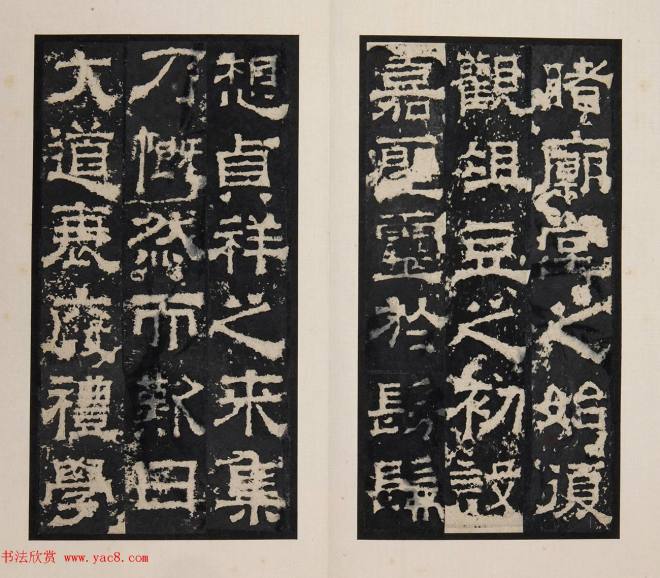 睹廟堂之始復
觀俎豆之初設
嘉聖靈於髣髴
想貞祥之來集
乃慨然而歎曰
大道衰廢禮學
书法欣赏 www.yac8.com